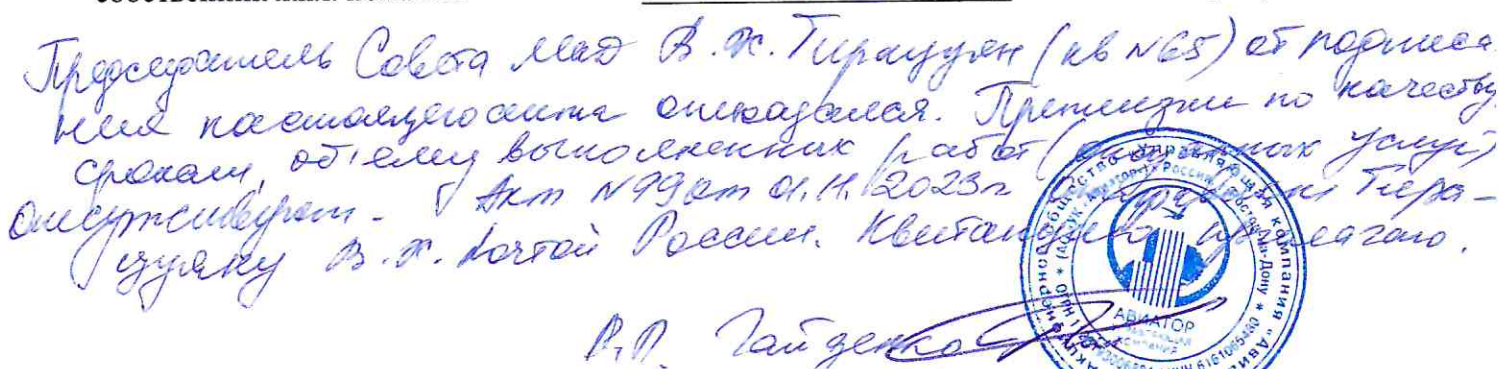 Председатель Совета МКД В.Х. Тирацуян (кв N65) от подписа-
ния настоящего акта отказался. Претензии по качеству,
срокам, объёму выполненных работ (оказанных услуг)
отсутствуют. Акт N99 от 01.11.2023г направлен Тира-
цуяну В.Х. Почтой России. Квитанцию прилагаю.
Гайденко
АВИАТОР
УПРАВЛЯЮЩАЯ
КОМПАНИЯ